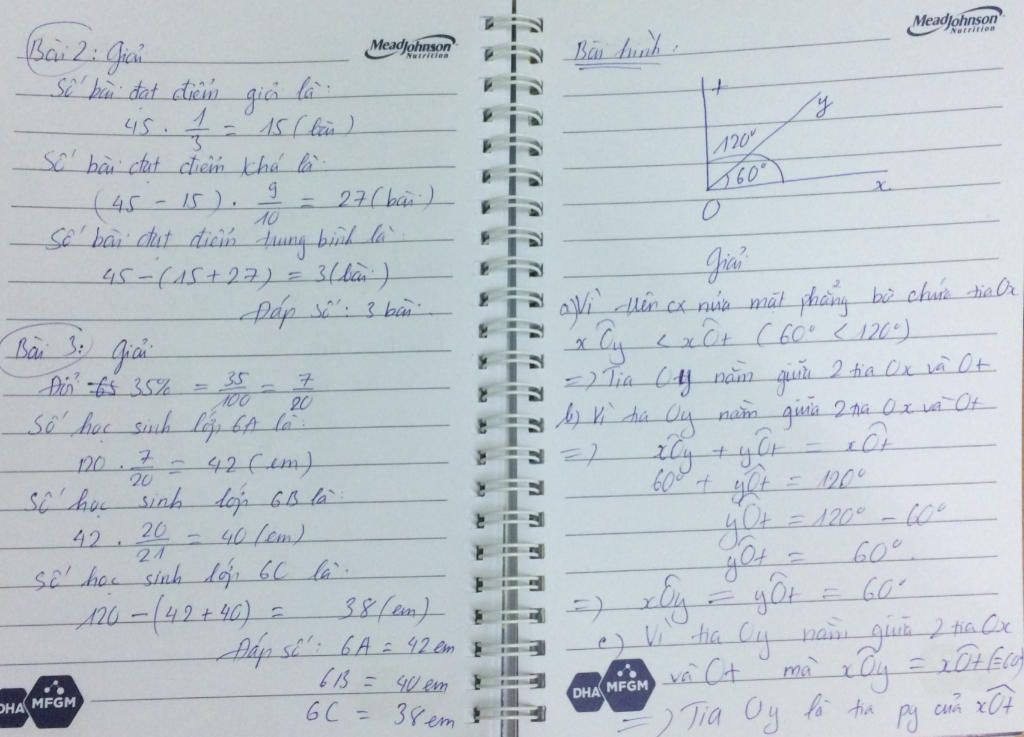 MeadJohnson
Nutrition
Bài 2: Giải
Số bài đạt điểm giỏi là:
45 . 1/3 = 15 (bài)
Số bài đạt điểm khá là:
(45 - 15) . 9/10 = 27 (bài)
Số bài đạt điểm trung bình là:
45 - (15 + 27) = 3 (bài)
Đáp số: 3 bài.
Bài 3: Giải
Đổi 35% = 35/100 = 7/20
Số học sinh lớp 6A là:
120 . 7/20 = 42 (em)
Số học sinh lớp 6B là:
42 . 20/21 = 40 (em)
Số học sinh lớp 6C là:
120 - (42 + 40) = 38 (em)
Đáp số: 6A = 42 em
6B = 40 em
6C = 38 em
DHA MFGM
MeadJohnson
Nutrition
Bài hình:
t
y
120°
60°
x
O
Giải
a) Vì trên cx nửa mặt phẳng bờ chứa tia Ox
xÔy < xÔt (60° < 120°)
=> Tia Oy nằm giữa 2 tia Ox và Ot
b) Vì tia Oy nằm giữa 2 tia Ox và Ot
=> xÔy + yÔt = xÔt
60° + yÔt = 120°
yÔt = 120° - 60°
yÔt = 60°.
=> xÔy = yÔt = 60°
c) Vì tia Oy nằm giữa 2 tia Ox
và Ot mà xÔy = xÔt (=60°)
=> Tia Oy là tia pg của xÔt
DHA MFGM